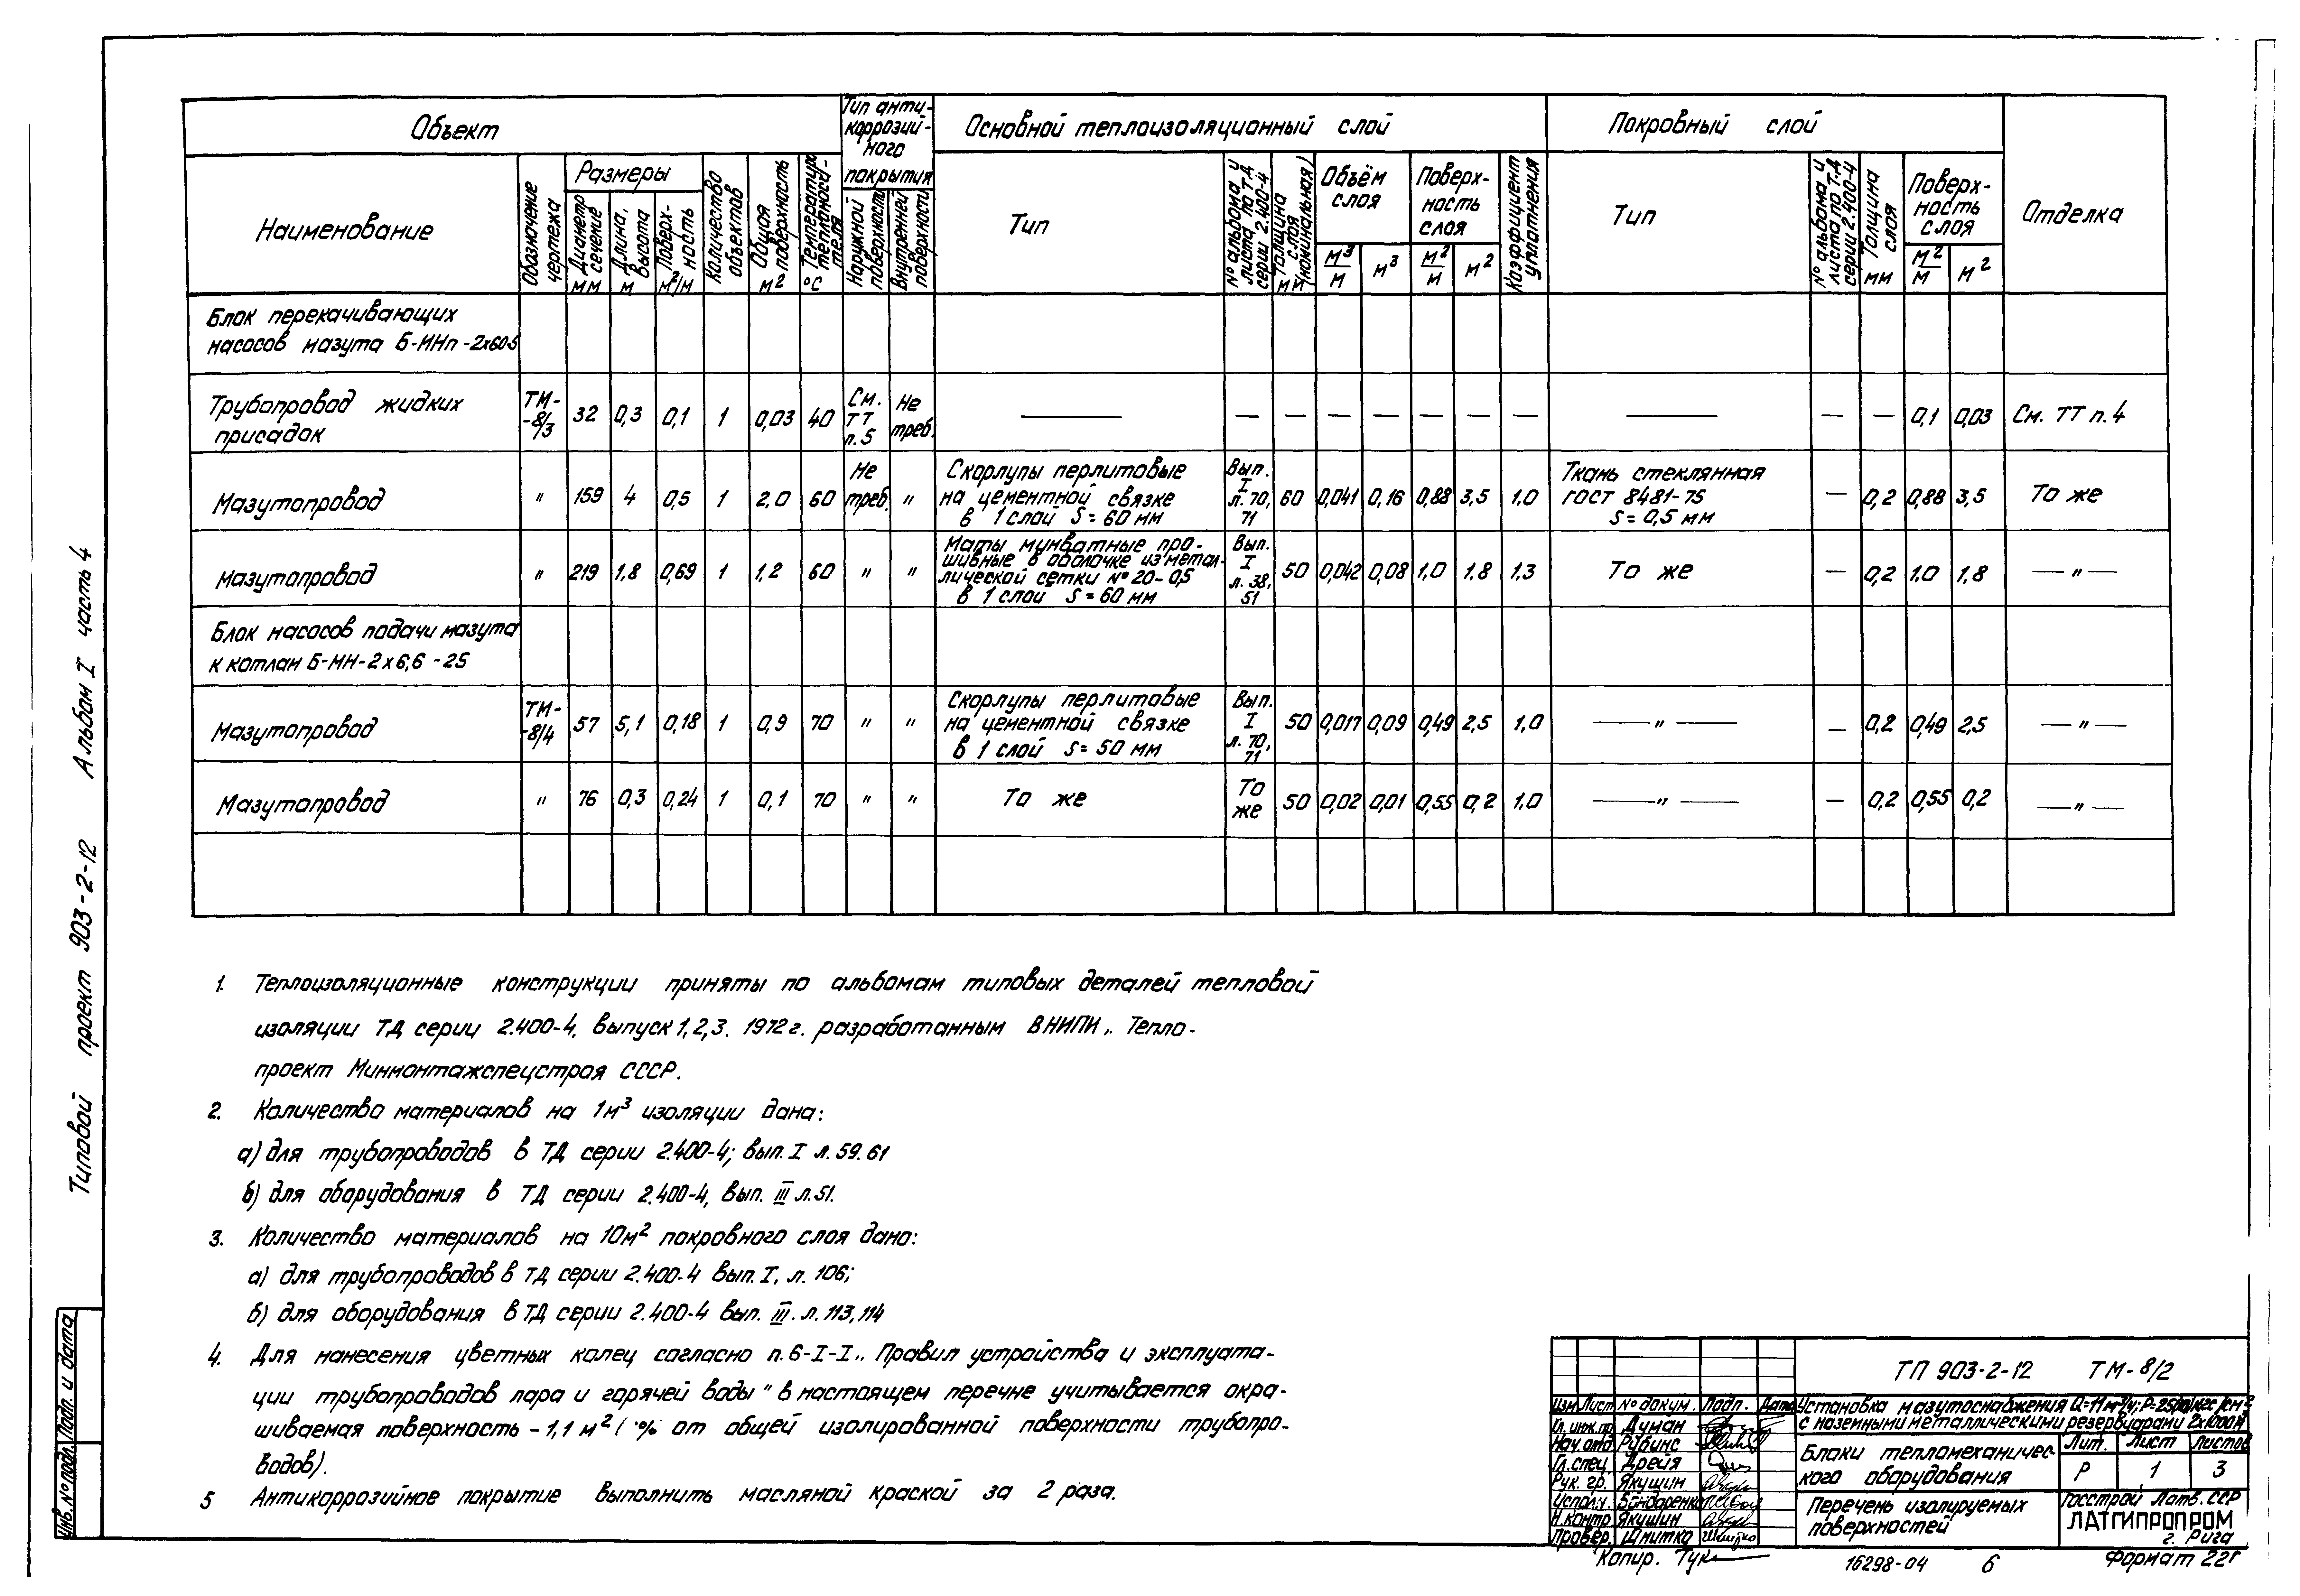 Типовой проект 903-2-12 Альбом I часть 4
Инв. № подл. Подп. и дата
Объект
Тип анти-
коррозий-
ного
покрытия
Основной теплоизоляционный слой
Покровный слой
Отделка
Наименование
Обозначение чертежа
Размеры
Диаметр сечение мм
Длина, высота м
Поверх-ность м²/м
Количество объектов
Общая поверхность м²
Температура теплоноси-теля °С
Наружной поверхности
Внутренней поверхности
Тип
№ альбома и листа по ТД серии 2.400-4
Толщина слоя (номинальная) мм
Объём слоя
м³/м м³
Поверх-
ность
слоя
м²/м м²
Коэффициент уплотнения
Тип
№ альбома и листа по Т.Д серии 2.400-4
Толщина слоя мм
Поверх-
ность
слоя
м²/м м²
Блок перекачивающих
насосов мазута Б-МНп-2х60-5
Трубопровод жидких присадок ТМ--8/3 32 0,3 0,1 1 0,03 40 См. ТТ п.5 Не треб. — — — — — — — — — — — 0,1 0,03 См. ТТ п.4
Мазутопровод " 159 4 0,5 1 2,0 60 Не треб. " Скорлупы перлитовые на цементной связке в 1 слой S=60 мм Вып. I л.70, 71 60 0,041 0,16 0,88 3,5 1,0 Ткань стеклянная ГОСТ 8481-75 S=0,5 мм — 0,2 0,88 3,5 То же
Мазутопровод " 219 1,8 0,69 1 1,2 60 " " Маты минватные про-шивные в оболочке из метал-лической сетки №20-0,5 в 1 слой S=60 мм Вып. I л.38, 51 50 0,042 0,08 1,0 1,8 1,3 То же — 0,2 1,0 1,8 —"—
Блок насосов подачи мазута
к котлам Б-МН-2х6,6-25
Мазутопровод ТМ--8/4 57 5,1 0,18 1 0,9 70 " " Скорлупы перлитовые на цементной связке в 1 слой S=50 мм Вып. I л.70, 71 50 0,017 0,09 0,49 2,5 1,0 —"— — 0,2 0,49 2,5 —"—
Мазутопровод " 76 0,3 0,24 1 0,1 70 " " То же То же 50 0,02 0,01 0,55 0,2 1,0 —"— — 0,2 0,55 0,2 —"—
1. Теплоизоляционные конструкции приняты по альбомам типовых деталей тепловой
изоляции ТД серии 2.400-4. выпуск 1,2,3. 1972г. разработанным ВНИПИ „ Тепло-
проект Минмонтажспецстроя СССР.
2. Количество материалов на 1м³ изоляции дана:
а) для трубопроводов в ТД серии 2.400-4; вып. I л.59.61
б) для оборудования в ТД серии 2.400-4, вып. III л.51.
3. Количество материалов на 10м² покровного слоя дано:
а) для трубопроводов в ТД серии 2.400-4 вып. I, л. 106;
б) для оборудования в ТД серии 2.400-4 вып. III. л.113,114
4. Для нанесения цветных колец согласно п.6-I-I „ Правил устройства и эксплуата-
ции трубопроводов пара и горячей воды" в настоящем перечне учитывается окра-
шиваемая поверхность - 1,1 м² ( % от общей изолированной поверхности трубопро-
водов).
5 Антикоррозийное покрытие выполнить масляной краской за 2 раза.
ТП 903-2-12 ТМ-8/2
Изм Лист № докум. Подп. Дата
Установка мазутоснабжения Q=11м³/ч; Р-25(10)кгс/см²
с наземными металлическими резервуарами 2х1000м³
Гл. инж. пр Думан
Нач. отд Рубинс
Гл. спец Дрейя
Рук. гр. Якушин
Исполн. Бондаренко
Н.контр Якушин
Провер. Шнитко
Блоки тепломеханичес-
кого оборудования
Лит. Лист Листов
Р 1 3
Перечень изолируемых
поверхностей
Госстрой Латв. ССР
ЛАТГИПРОПРОМ
г. Рига
Копир. 16298-04 6 Формат 22г